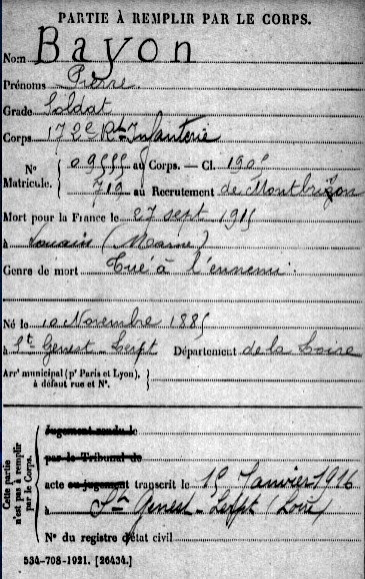 PARTIE À REMPLIR PAR LE CORPS.
Nom Bayon
Prénoms Pierre
Grade Soldat
Corps 172e Rt Infanterie
N° Matricule. 09555 au Corps. — Cl. 1905
719 au Recrutement de Montbrison
Mort pour la France le 27 sept 1915
à Souain (Marne)
Genre de mort Tué à l'ennemi
Né le 10 Novembre 1885
à St Genest-Lerpt Département de la Loire
Arrt municipal (pr Paris et Lyon), à défaut rue et N°.
Cette partie n'est pas à remplir par le Corps.
Jugement rendu le
par le Tribunal de
acte ou jugement transcrit le 19 Janvier 1916
à St Genest-Lerpt (Loire)
N° du registre d'état civil
534-708-1921. [26434.]